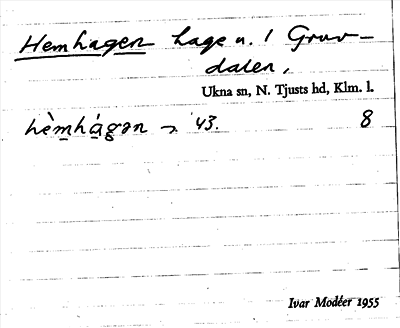 Hemhagen hage u. / Gruv-
dalen,
Ukna sn, N. Tjusts hd, Klm. l.
hèmhágən → 43. 8
Ivar Modéer 1955